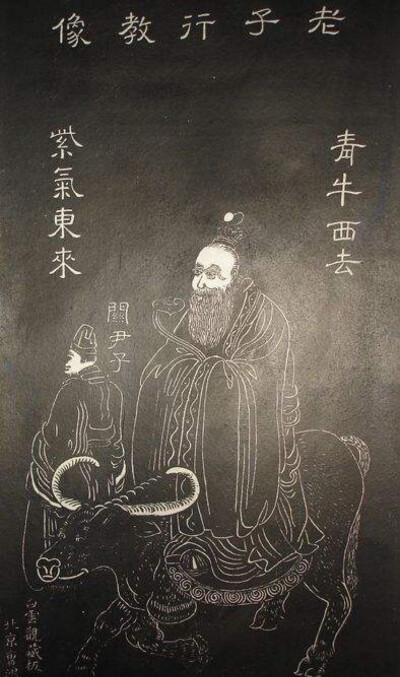 老子行教像
青牛西去
紫氣東來
關尹子
白雲觀藏板
北京